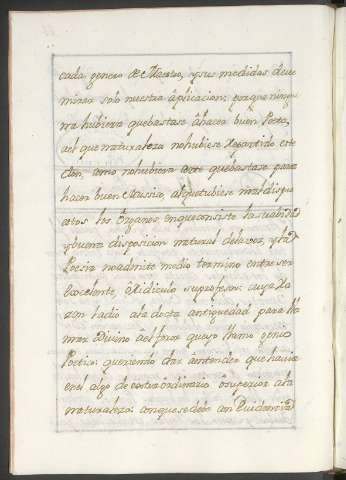 cada genero de Metro, y sus medidas, deve
mirar solo nuestra aplicacion; porque ningu
na hubiera que bastase á hacer buen Poeta,
ael que naturaleza no hubiese repartido este
don, como no hubiera Arte que bastase para
hacer buen Mussico, al que tubiese mal dispu
estos los Organos, en que consiste la suavidad
y buena disposicion natural de la voz, y la
Poesia no admite medio termino entre ser
Excelente, ó Ridiculo su profesor: cuya Ra
zon ladio ala docta antiguedad para lla
mar Divino áel furor que yo llamo genio
Poetico: queriendo dar áentender que havia
en el algo de extraordinario ó superior ala
naturaleza: aunque se debe con Evidencia